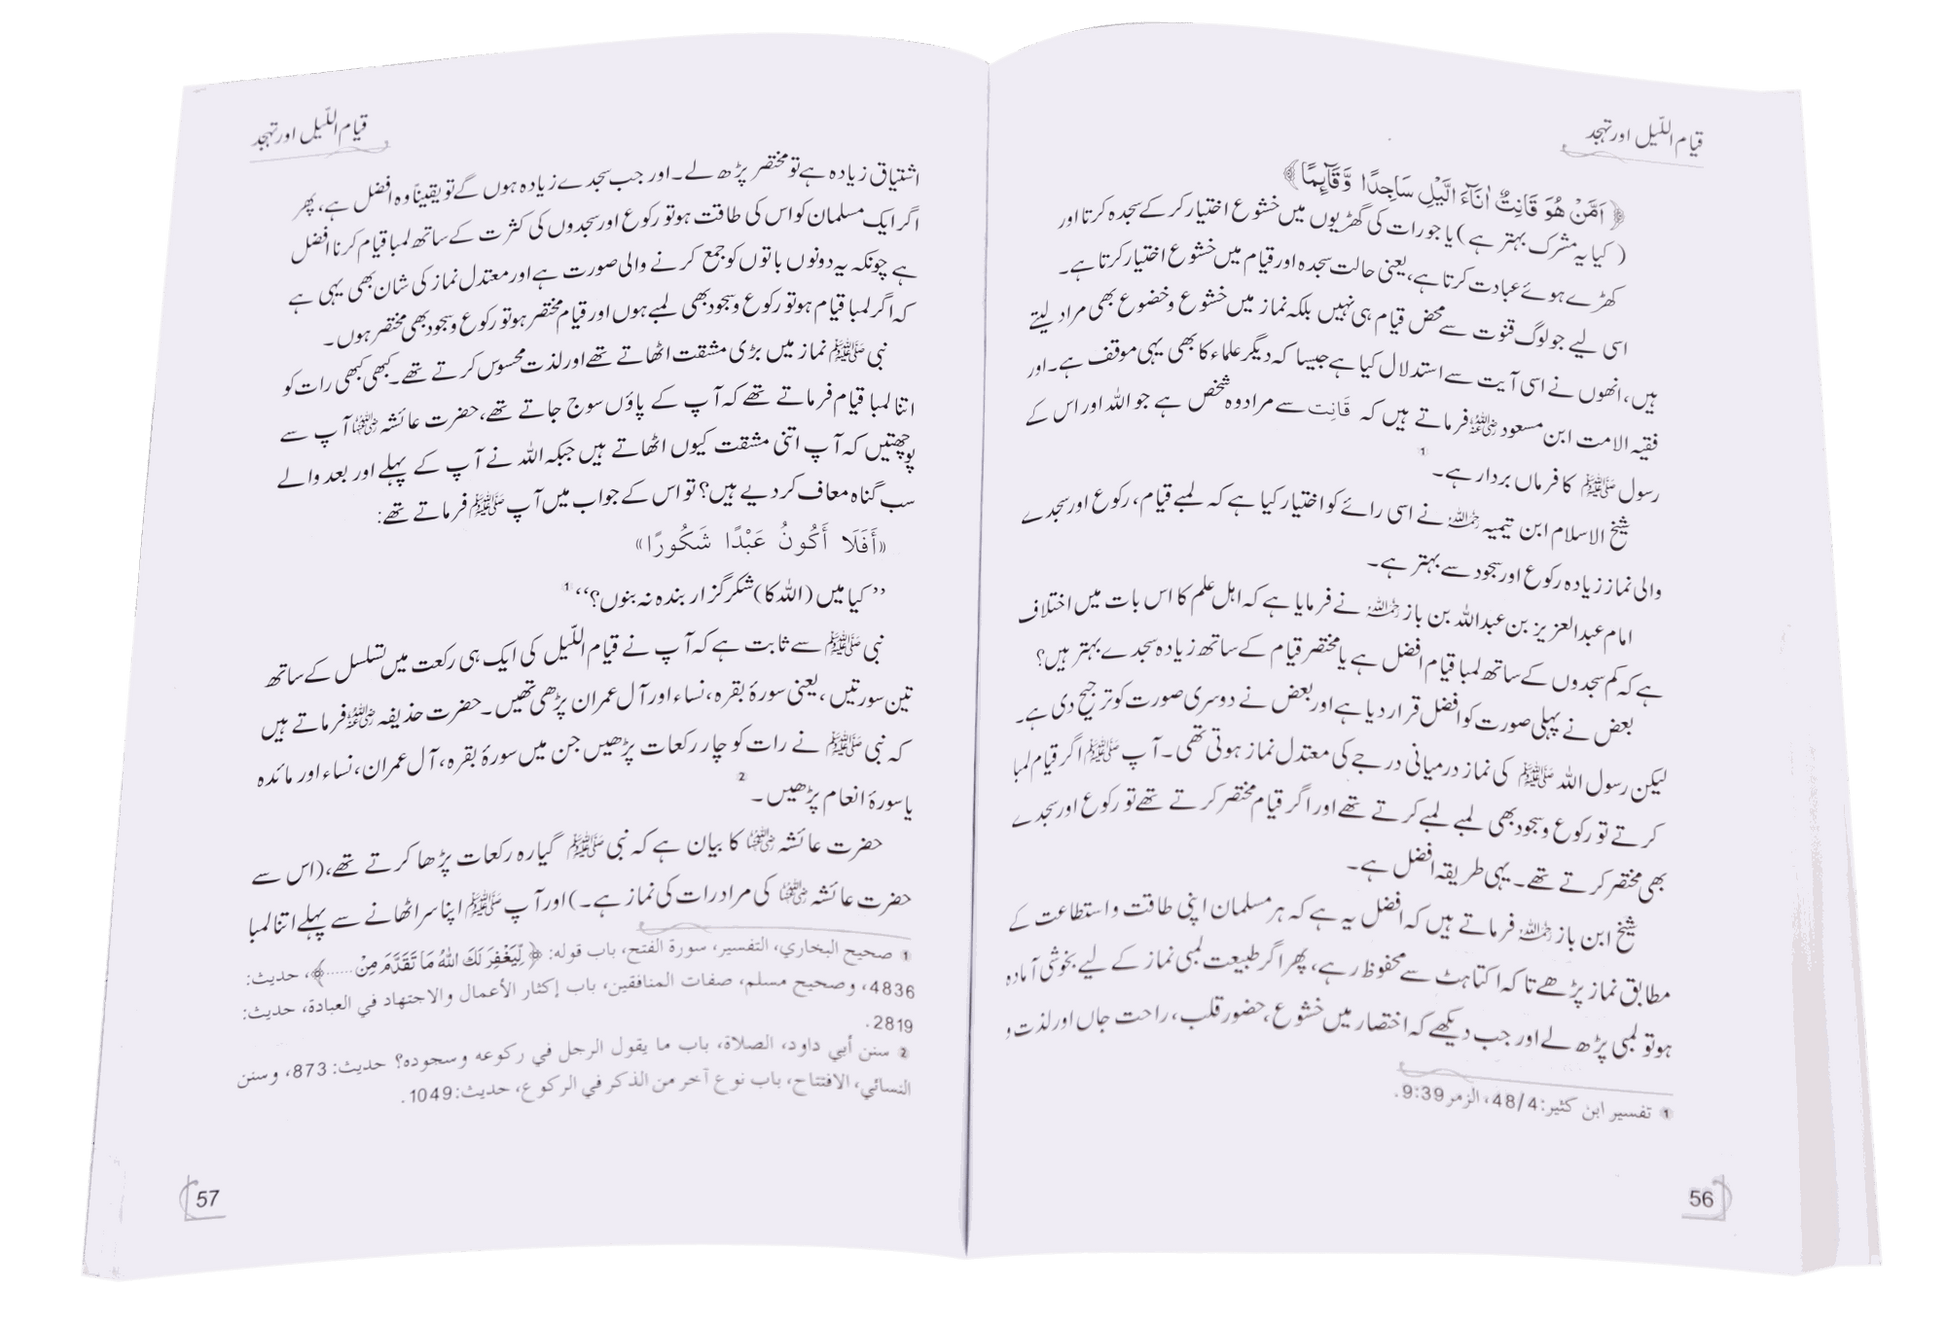 قیام اللّیل اور تہجد
﴿ اَمَّنْ هُوَ قَانِتٌ اٰنَآءَ الَّيْلِ سَاجِدًا وَّقَآىِٕمًا﴾
( کیا یہ مشرک بہتر ہے ) یا جو رات کی گھڑیوں میں خشوع اختیار کر کے سجدہ کرتا اور
کھڑے ہوئے عبادت کرتا ہے، یعنی حالت سجدہ اور قیام میں خشوع اختیار کرتا ہے۔
اسی لیے جو لوگ قنوت سے محض قیام ہی نہیں بلکہ نماز میں خشوع وخضوع بھی مراد لیتے
ہیں، انھوں نے اسی آیت سے استدلال کیا ہے جیسا کہ دیگر علماء کا بھی یہی موقف ہے۔ اور
فقیہ الامت ابن مسعود رضی اللہ عنہ فرماتے ہیں کہ قَانِت سے مراد وہ شخص ہے جو اللہ اور اس کے
رسول ﷺ کا فرماں بردار ہے۔ ①
شیخ الاسلام ابن تیمیہ رحمہ اللہ نے اسی رائے کو اختیار کیا ہے کہ لمبے قیام، رکوع اور سجدے
والی نماز زیادہ رکوع اور سجود سے بہتر ہے۔
امام عبدالعزیز بن عبداللہ بن باز رحمہ اللہ نے فرمایا ہے کہ اہل علم کا اس بات میں اختلاف
ہے کہ کم سجدوں کے ساتھ لمبا قیام افضل ہے یا مختصر قیام کے ساتھ زیادہ سجدے بہتر ہیں؟
بعض نے پہلی صورت کو افضل قرار دیا ہے اور بعض نے دوسری صورت کو ترجیح دی ہے۔
لیکن رسول اللہ ﷺ کی نماز درمیانی درجے کی معتدل نماز ہوتی تھی۔ آپ ﷺ اگر قیام لمبا
کرتے تو رکوع وسجود بھی لمبے لمبے کرتے تھے اور اگر قیام مختصر کرتے تھے تو رکوع اور سجدے
بھی مختصر کرتے تھے۔ یہی طریقہ افضل ہے۔
شیخ ابن باز رحمہ اللہ فرماتے ہیں کہ افضل یہ ہے کہ ہر مسلمان اپنی طاقت و استطاعت کے
مطابق نماز پڑھے تا کہ اکتاہٹ سے محفوظ رہے، پھر اگر طبیعت لمبی نماز کے لیے بخوشی آمادہ
ہو تو لمبی پڑھ لے اور جب دیکھے کہ اختصار میں خشوع، حضور قلب، راحت جاں اور لذت و
① تفسير ابن كثير: 48/4، الزمر 9:39.
56
قیام اللّیل اور تہجد
اشتیاق زیادہ ہے تو مختصر پڑھ لے۔ اور جب سجدے زیادہ ہوں گے تو یقیناً وہ افضل ہے، پھر
اگر ایک مسلمان کو اس کی طاقت ہو تو رکوع اور سجدوں کی کثرت کے ساتھ لمبا قیام کرنا افضل
ہے چونکہ یہ دونوں باتوں کو جمع کرنے والی صورت ہے اور معتدل نماز کی شان بھی یہی ہے
کہ اگر لمبا قیام ہو تو رکوع وسجود بھی لمبے ہوں اور قیام مختصر ہو تو رکوع وسجود بھی مختصر ہوں۔
نبی ﷺ نماز میں بڑی مشقت اٹھاتے تھے اور لذت محسوس کرتے تھے۔ کبھی کبھی رات کو
اتنا لمبا قیام فرماتے تھے کہ آپ کے پاؤں سوج جاتے تھے، حضرت عائشہ رضی اللہ عنہا آپ سے
پوچھتیں کہ آپ اتنی مشقت کیوں اٹھاتے ہیں جبکہ اللہ نے آپ کے پہلے اور بعد والے
سب گناہ معاف کر دیے ہیں؟ تو اس کے جواب میں آپ ﷺ فرماتے تھے:
«أَفَلَا أَكُونُ عَبْدًا شَكُورًا»
’’کیا میں (اللہ کا) شکر گزار بندہ نہ بنوں؟‘‘ ①
نبی ﷺ سے ثابت ہے کہ آپ نے قیام اللّیل کی ایک ہی رکعت میں تسلسل کے ساتھ
تین سورتیں، یعنی سورۂ بقرہ، نساء اور آل عمران پڑھی تھیں۔ حضرت حذیفہ رضی اللہ عنہ فرماتے ہیں
کہ نبی ﷺ نے رات کو چار رکعات پڑھیں جن میں سورۂ بقرہ، آل عمران، نساء اور مائدہ
یا سورۂ انعام پڑھیں۔ ②
حضرت عائشہ رضی اللہ عنہا کا بیان ہے کہ نبی ﷺ گیارہ رکعات پڑھا کرتے تھے، (اس سے
حضرت عائشہ رضی اللہ عنہا کی مراد رات کی نماز ہے۔) اور آپ ﷺ اپنا سر اٹھانے سے پہلے اتنا لمبا
① صحيح البخاري، التفسير، سورة الفتح، باب قوله: ﴿ لِّيَغْفِرَ لَكَ اللّٰهُ مَا تَقَدَّمَ مِنْ ......﴾، حديث:
4836، وصحيح مسلم، صفات المنافقين، باب إكثار الأعمال والاجتهاد في العبادة، حديث:
2819.
② سنن أبي داود، الصلاة، باب ما يقول الرجل في ركوعه وسجوده؟ حديث: 873، وسنن
النسائي، الافتتاح، باب نوع آخر من الذكر في الركوع، حديث: 1049.
57